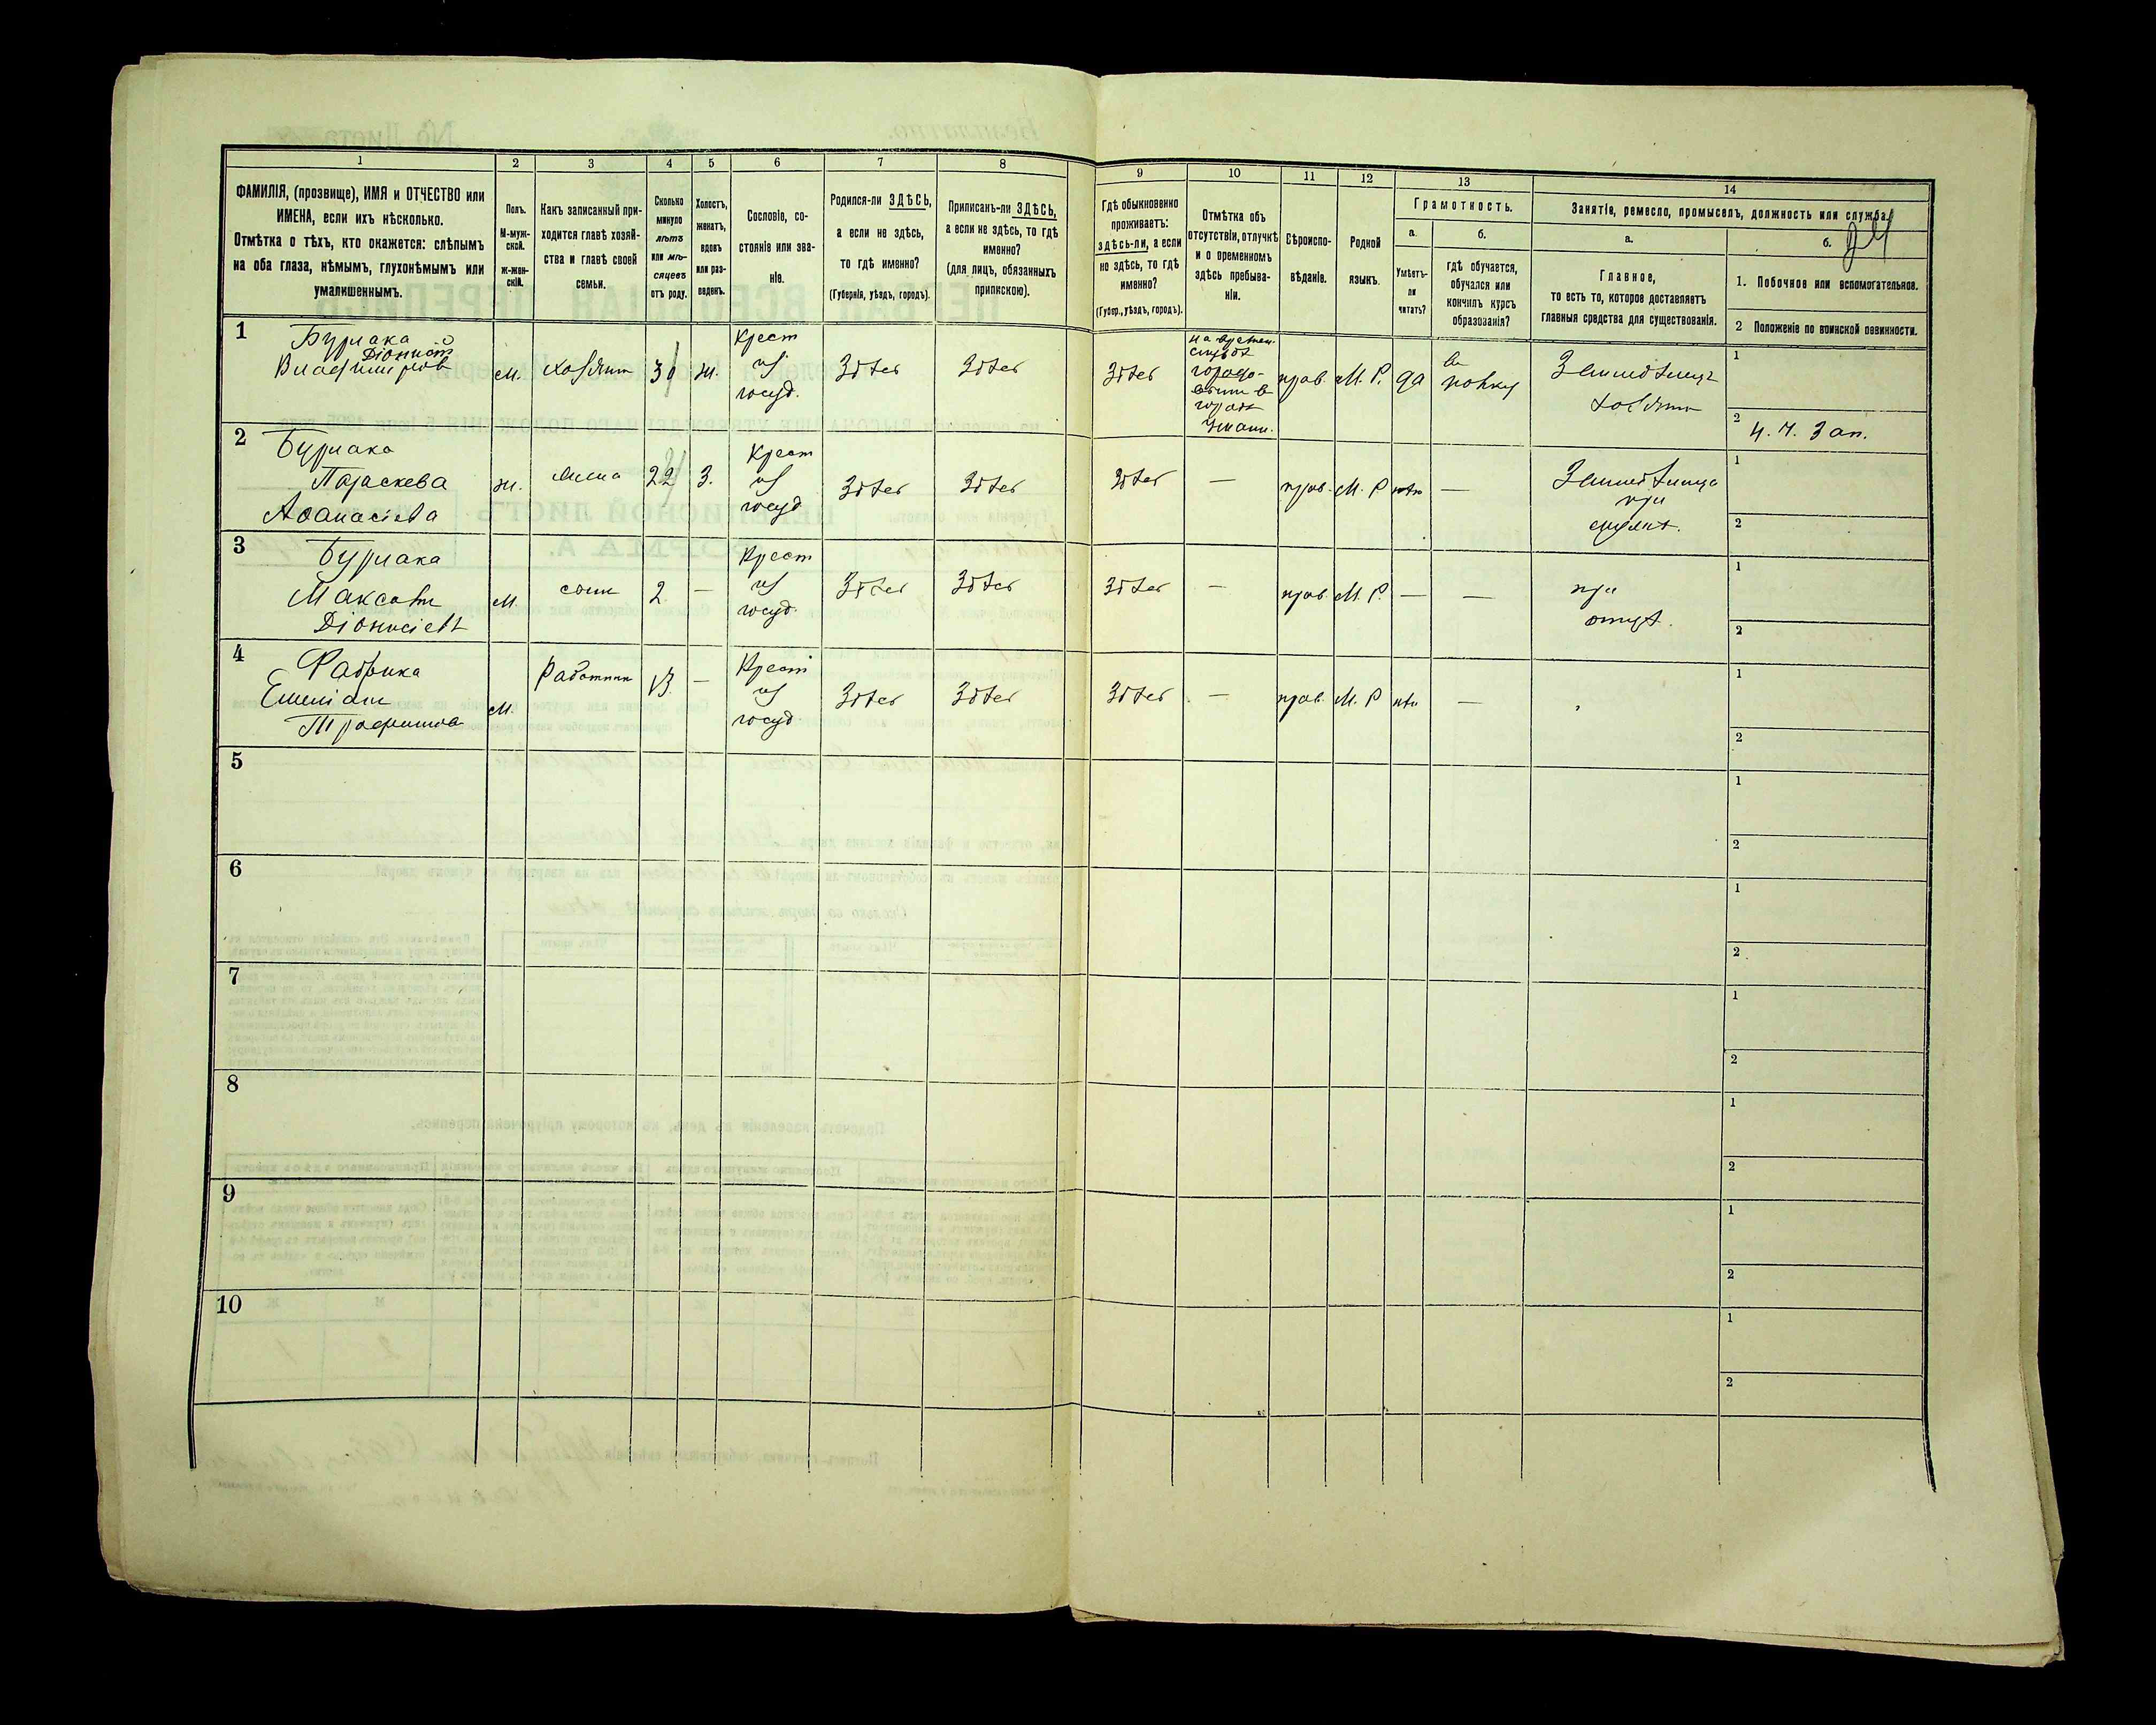 1 2 3 4 5 6 7 8 9 10 11 12 13 14
ФАМИЛІЯ, (прозвище), ИМЯ и ОТЧЕСТВО или
ИМЕНА, если ихъ нѣсколько.
Отмѣтка о тѣхъ, кто окажется: слѣпымъ
на оба глаза, нѣмымъ, глухонѣмымъ или
умалишеннымъ.
Полъ.
М-муж-
ской.
ж-жен-
скій.
Какъ записанный при-
ходится главѣ хозяй-
ства и главѣ своей
семьи.
Сколько
минуло
лѣтъ
или мѣ-
сяцевъ
отъ роду.
Холостъ,
женатъ,
вдовъ
или раз-
веденъ.
Сословіе, со-
стояніе или зва-
ніе.
Родился-ли ЗДѢСЬ,
а если не здѣсь,
то гдѣ именно?
(Губернія, уѣздъ, городъ).
Приписанъ-ли ЗДѢСЬ,
а если не здѣсь, то гдѣ
именно?
(для лицъ, обязанныхъ
припискою).
Гдѣ обыкновенно
проживаетъ:
здѣсь-ли, а если
не здѣсь, то гдѣ
именно?
(Губер., уѣздъ, городъ).
Отмѣтка объ
отсутствіи, отлучкѣ
и о временномъ
здѣсь пребыва-
ніи.
Вѣроиспо-
вѣданіе.
Родной
языкъ.
Грамотность.
а.
Умѣетъ-
ли
читать?
б.
гдѣ обучается,
обучался или
кончилъ курсъ
образованія?
Занятіе, ремесло, промыселъ, должность или служба.
а.
Главное,
то есть то, которое доставляетъ
главныя средства для существованія.
б.
1. Побочное или вспомогательное.
2 Положеніе по воинской повинности.
1
Бурлака
Діонисій
Владиміров
м.
хозяин
ж.
Крест
из
госуд.
Здѣсь
Здѣсь
Здѣсь
на времен.
службѣ
городо-
вым в
городѣ
Умани.
прав.
М. Р.
да
в
полку
Земледѣлец
хозяин
1
2 Н. Ч. Зап.
2
Бурлака
Параскева
Аѳанасіева
ж.
жена
22
З.
Крест
из
госуд
Здѣсь
Здѣсь
Здѣсь
—
прав.
М. Р
нѣт
—
Земледѣлица
при
1
2
3
Бурлака
Діонисіевъ
м.
сын
2
—
Крест
из
госуд.
Здѣсь
Здѣсь
Здѣсь
—
прав.
М. Р.
—
—
при
отцѣ.
1
2
4
м.
Работник
13.
—
Крест
из
госуд
Здѣсь
Здѣсь
Здѣсь
—
прав.
М. Р
нѣт
—
1
2
5
1
2
6
1
2
7
1
2
8
1
2
9
1
2
10
1
2